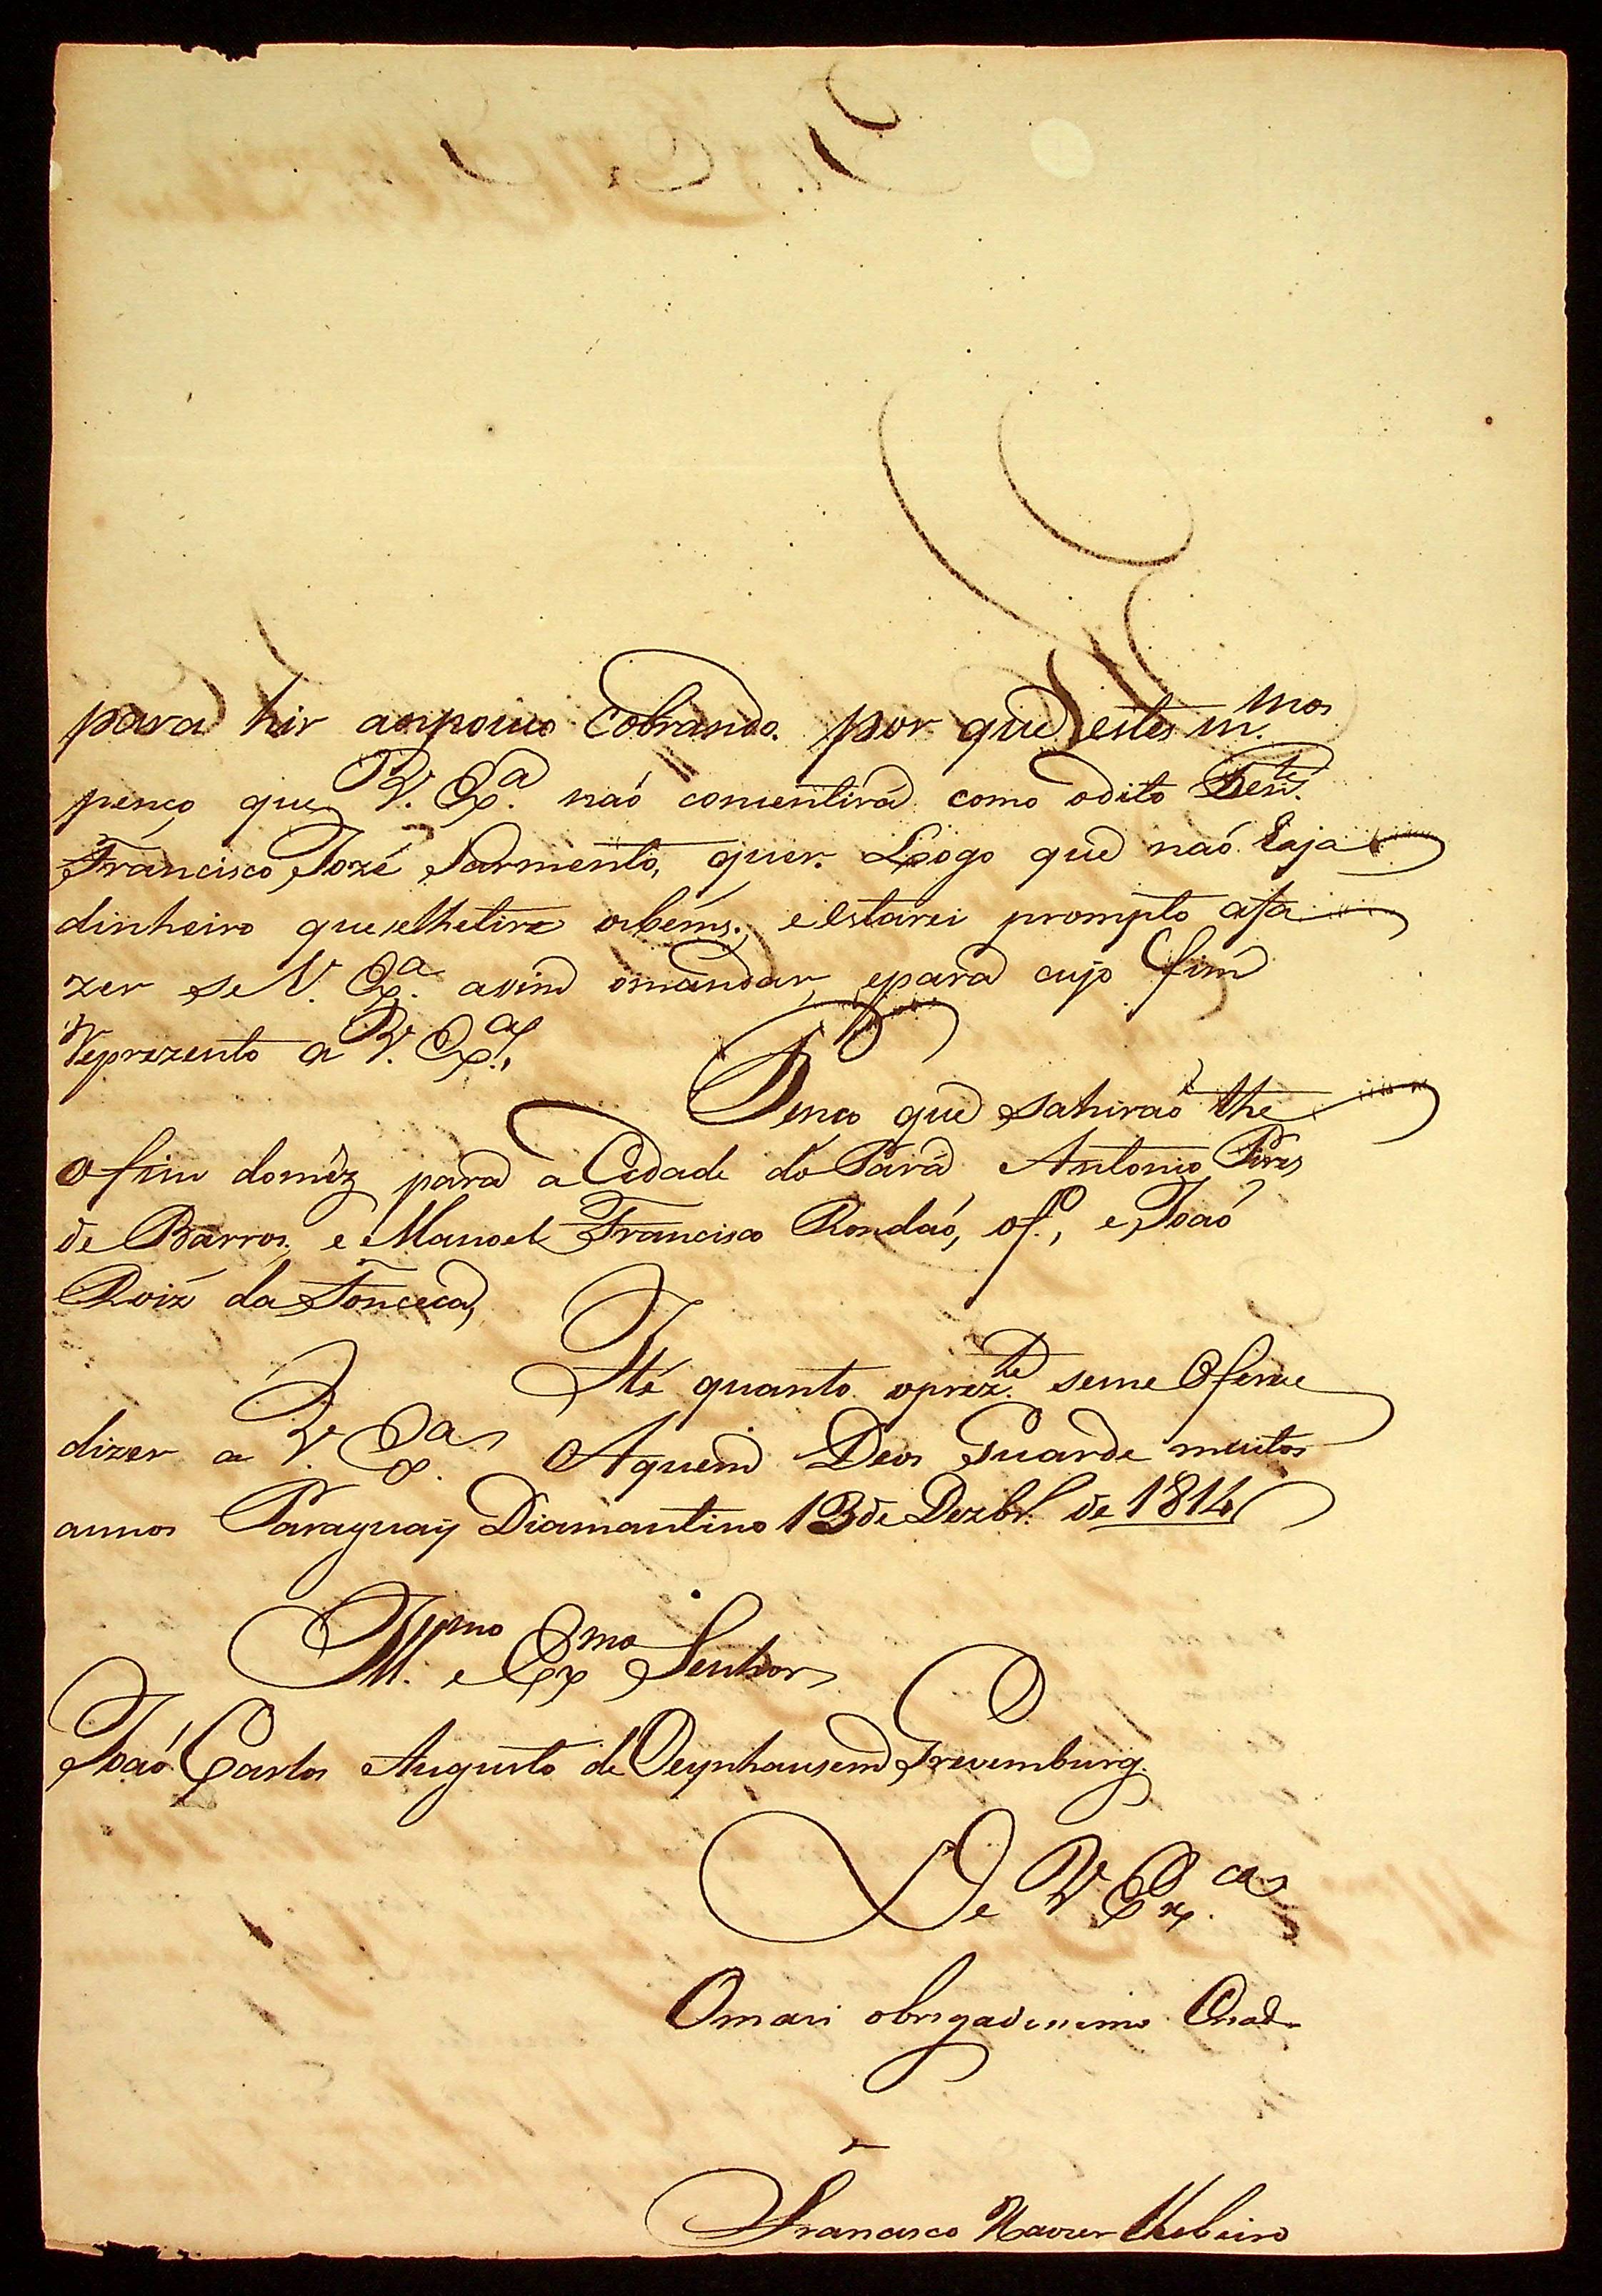 para hir aospouco Cobrando. por que estes m.mos
penço que V. Exª. naó consentirá como odito Ten.te
Francisco Jozé Sarmento, quer. Logo que naó haja
dinheiro queselhetire osbéms, eestarei prompto afa
zer se V. Exª. assim omandar, epara cujo fim
Reprezento a V. Exª.,
Penço que sahiraó thé
o fim doméz para a Cidade do Pará Antonio Pires
de Barros, e Manoel Francisco Rondaó, of.º, e Joaó
Roiz da Fonceca,
Hé quanto oprez.te seme Oferece
dizer a V. Exª. Aquem Deos Guarde muitos
annos Paraguay Diamantino 13 de Dezbr.º de 1814
Ill.mo e Ex.mo Senhor
Joaó Carlos Augusto de Oeynhausem Grevemburg.
De V. Ex.ca
Omais obrigadissimo Criado
Francisco Xavier Ribeiro